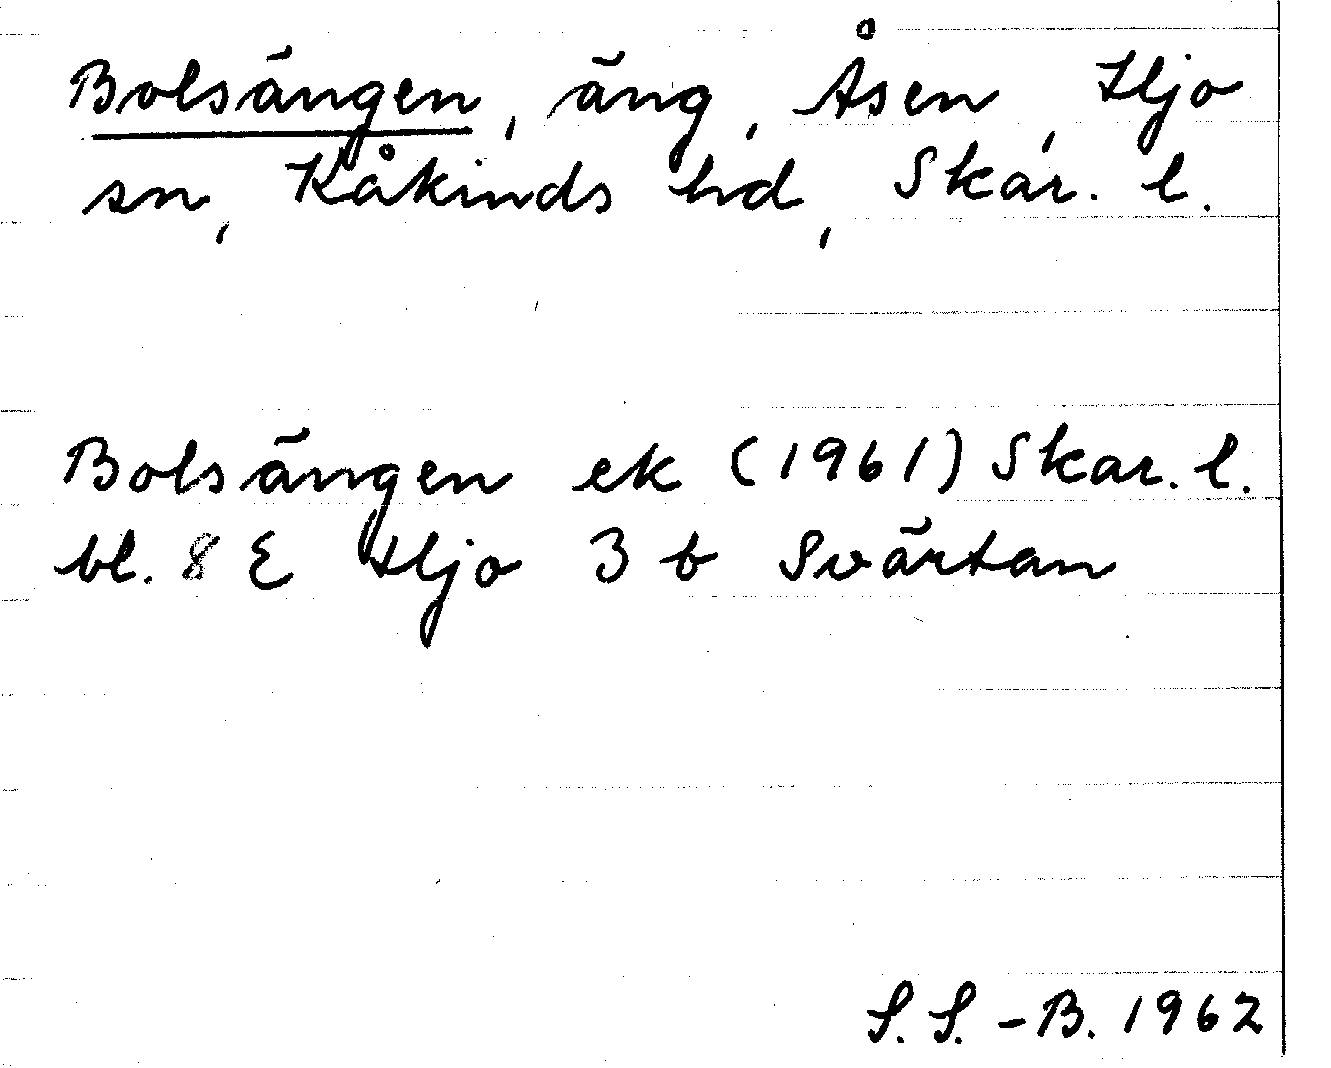 Bolsängen, äng, Åsen, Hjo
sn, Kåkinds hd, Skar. l.
Bolsängen ek (1961) Skar. l.
bl. 8 E Hjo 3 b Svärtan
S. S. - B. 1962